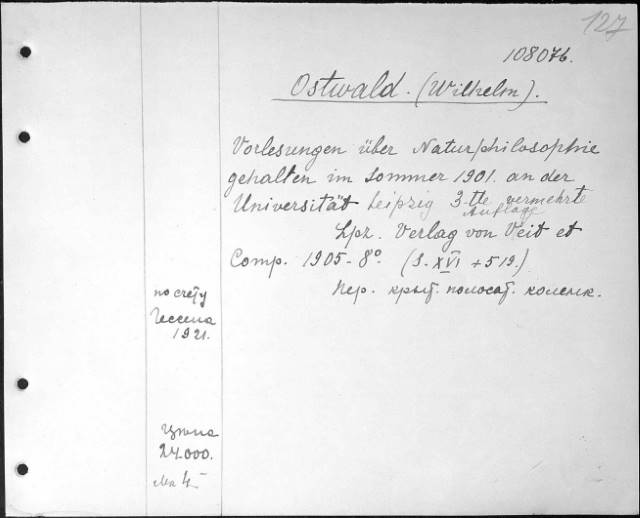 127
108076.
Ostwald. (Wilhelm).
Vorlesungen über Naturphilosophie
gehalten im Sommer 1901. an der
Universität Leipzig 3-tte vermehrte
Auflage
Lpz. Verlag von Veit et
Comp. 1905 - 8° (S. XVI + 519.)
Пер. крыт. полосат. коленк.
по счету
Гессена
1921.
Цѣна
24.000.
Мк 4